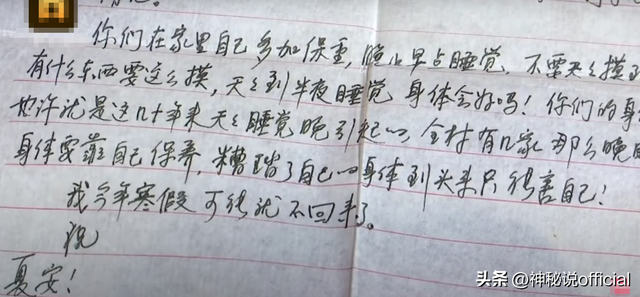 你们在家里自己多加保重,晚上早点睡觉、不要天天摸到
有什么东西要这么摸,天天到半夜睡觉 身体会好吗!你们的身
也许就是这几十年来天天睡觉晚引起的,全村有几家那么晚
身体要靠自己保养,糟踏了自己的身体到头来只能害自己!
我今年寒假可能就不回来了。
祝
夏安!
头条@神秘说official